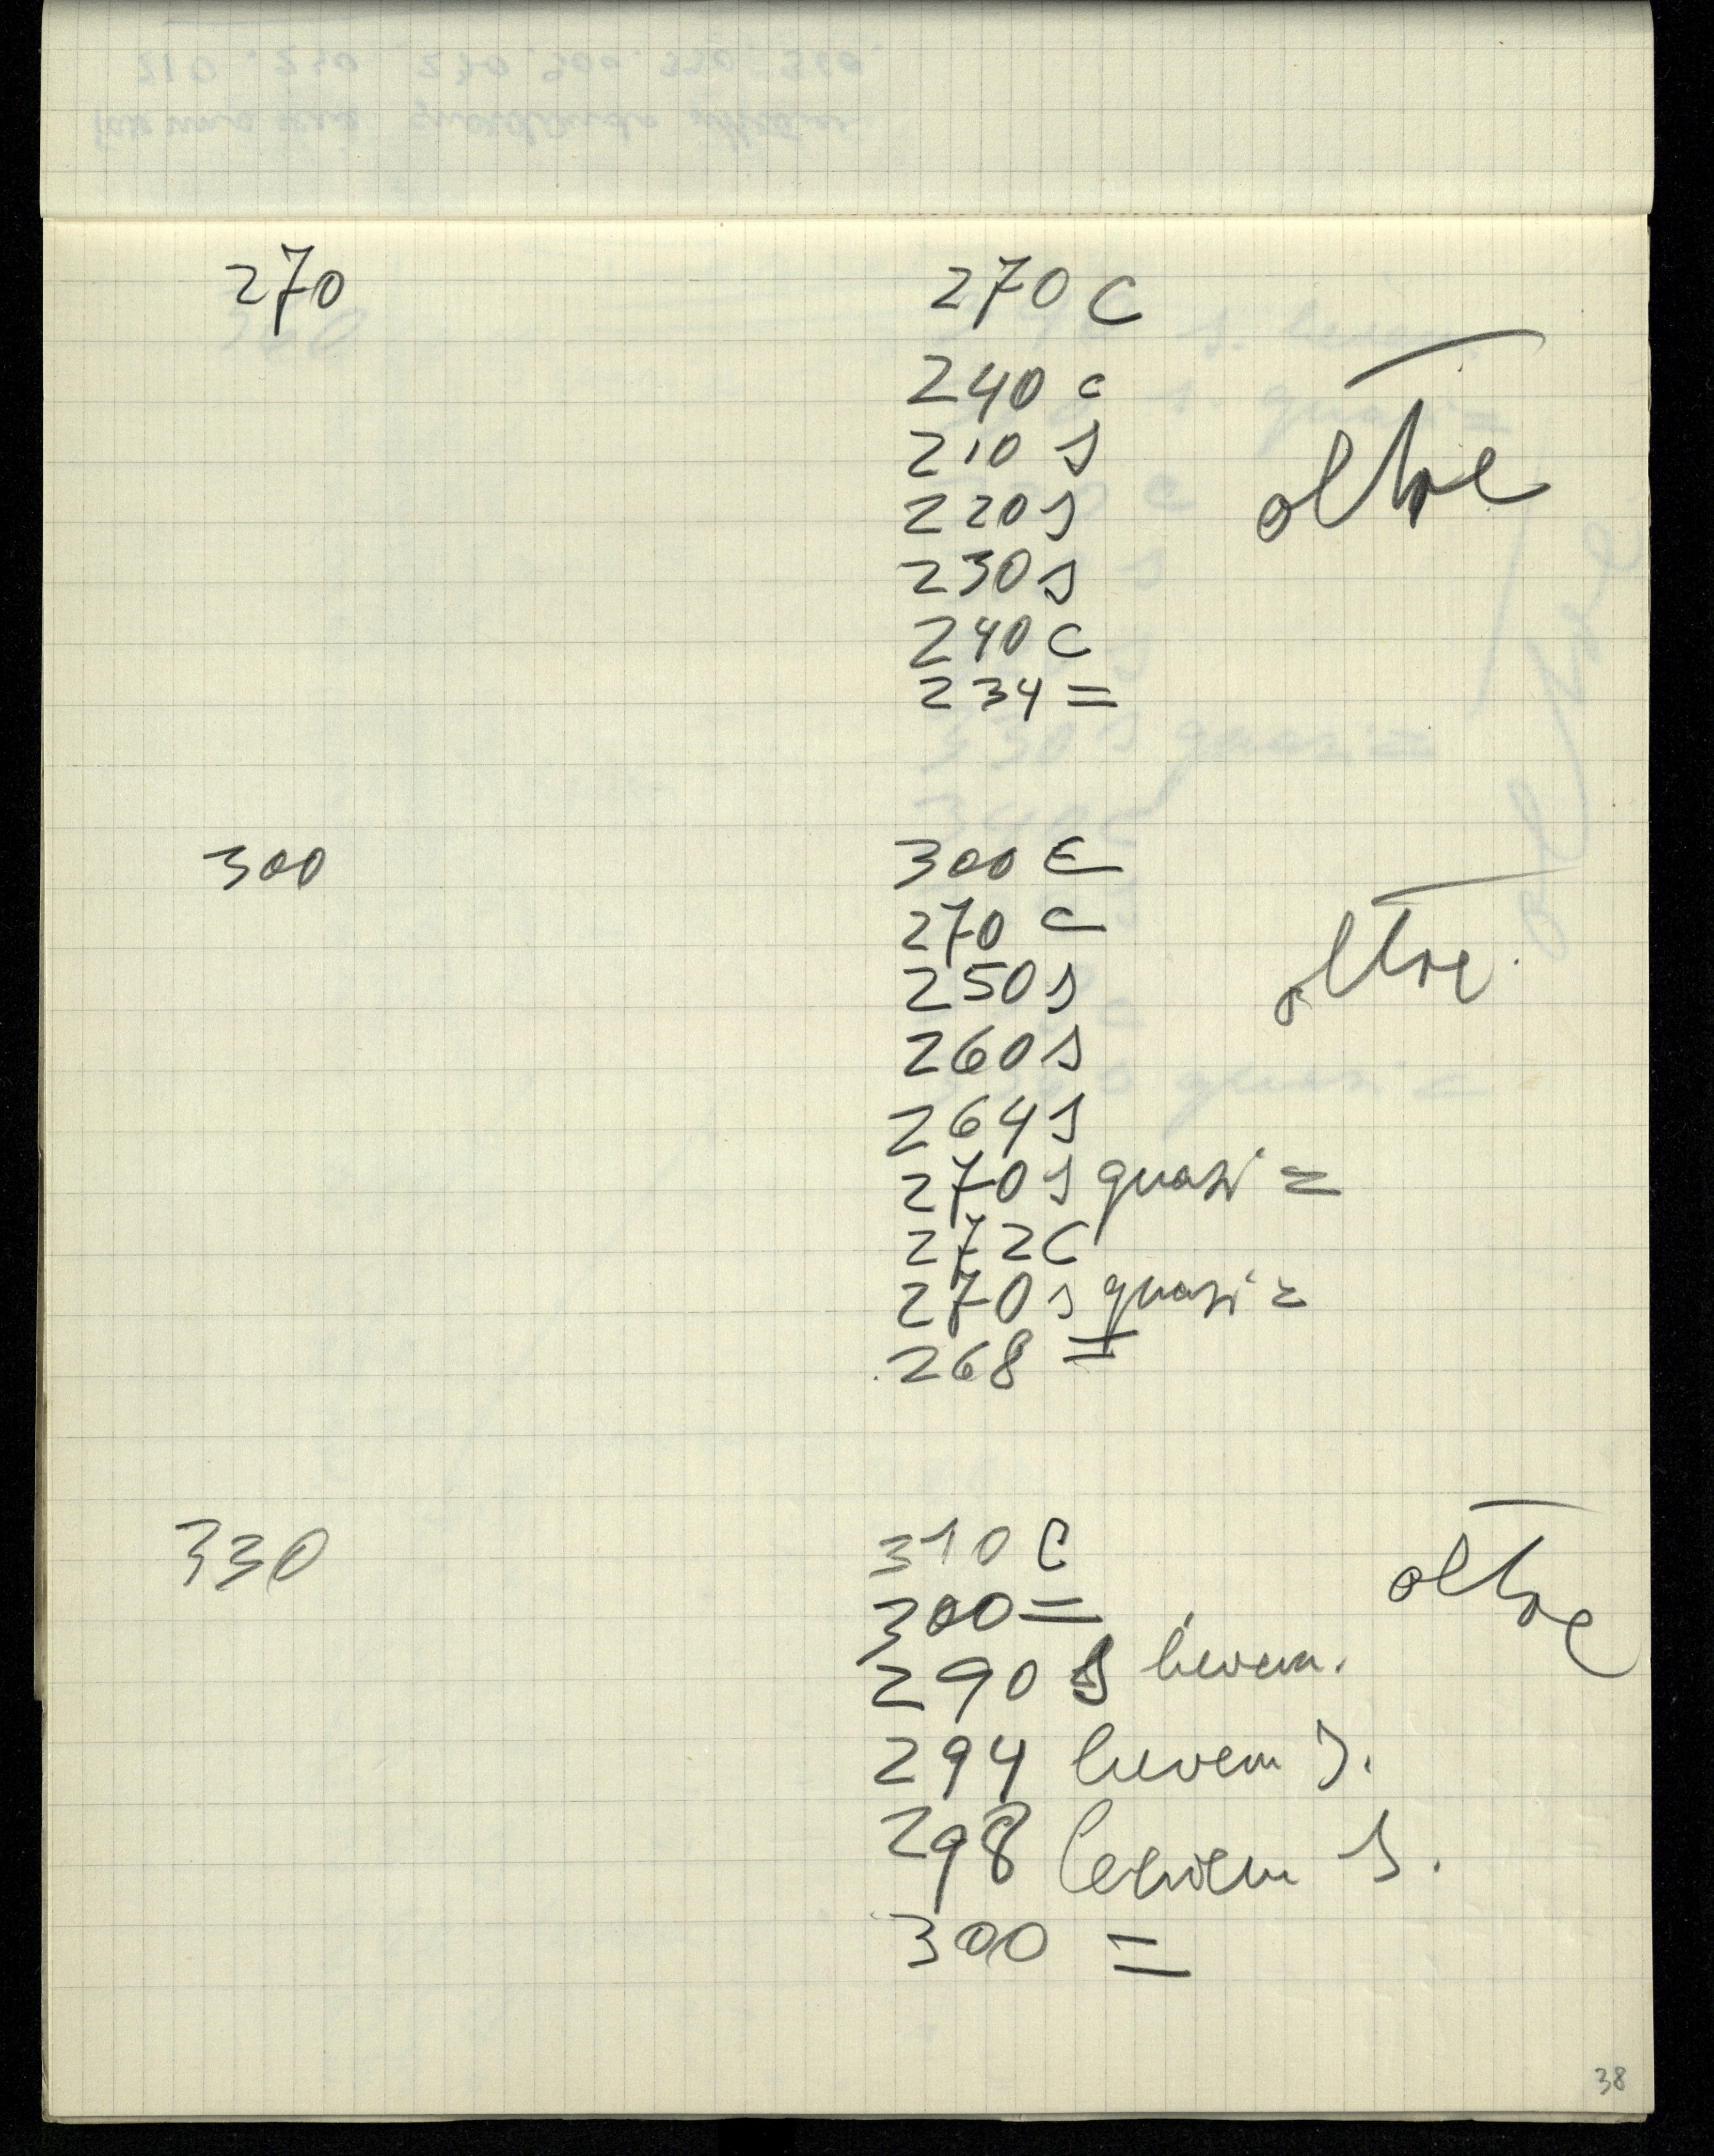 270 270 C
240 c
oltre
210 s
220 s
230 s
240 C
234 =
300 300 C
270 C
oltre.
250 s
260 s
264 s
270 s quasi =
272 C
270 s quasi =
268 =
330 310 C
oltre
300 =
290 s lievem.
294 lievem s.
298 lievem s.
300 =
38